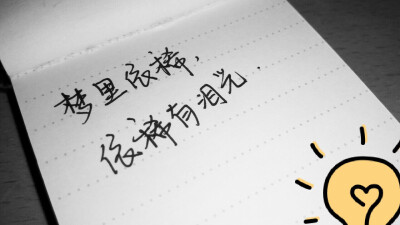 梦里依稀,
依稀有泪光.